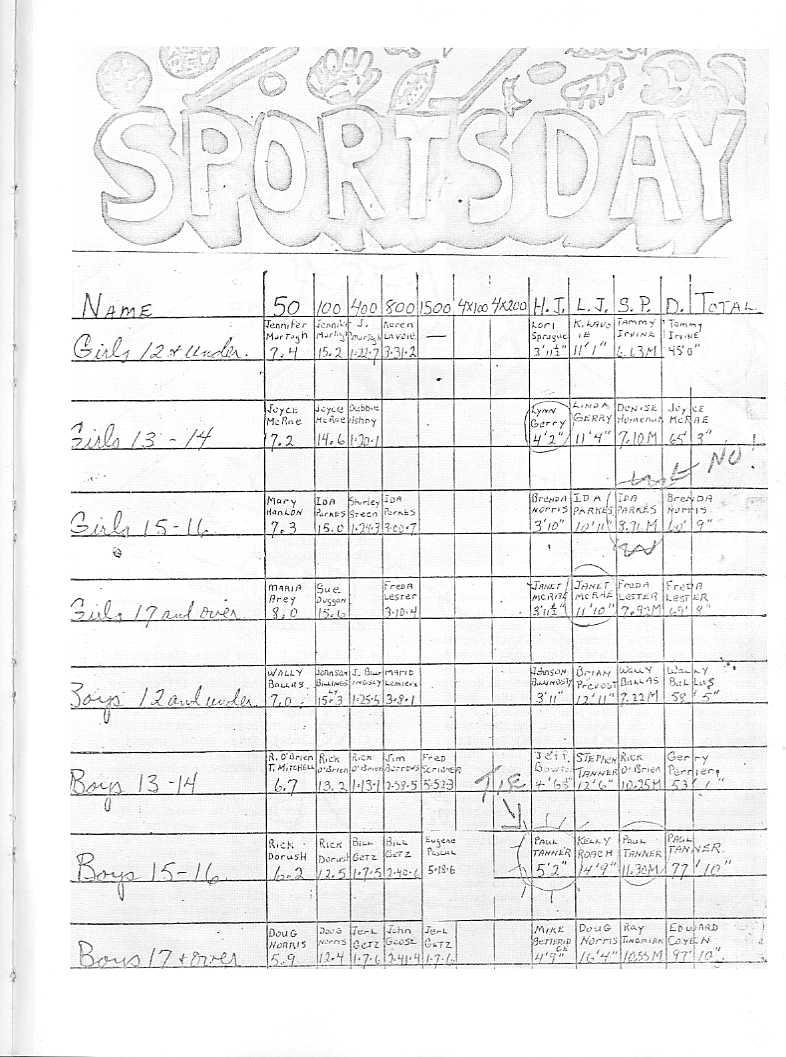 SPORTS DAY
NAME 50 100 400 800 1500 4X100 4X200 H.J. L.J. S.P. D. TOTAL
Jennifer Jennifer J. Karen — Lori K. LAVOIE TAMMY Tammy
Murtagh Murtagh Murtagh Lavoie Sprague IRVINE IRVINE
Girls 12 + under. 7.4 15.2 1-22-7 3-31-2 3'11½" 11'1" 6.63M 45'0"
Joyce Joyce Debbie LYNN LINDA DENISE Joyce
McRae McRae Gerry GERRY McRAE
Girls 13-14 7.2 14.6 1-20-1 4'2" 11'4" 7.10M 65' 3"
NO!
Mary IDA Shirley IDA BRENDA IDA IDA BRENDA
HANLON PARKES Steen PARKES NORRIS PARKES PARKES NORRIS
Girls 15-16 7.3 15.0 1-24-3 3-00-7 3'10" 10'11" 8.71M 60' 9"
MARIA Sue FREDA JANET JANET FREDA FREDA
Arey Duggan Lester McRAE McRAE LESTER LESTER
Girls 17 and over 8.0 15.6 3-10-4 3'11½" 11'10" 7.92M 69' 8"
WALLY Johnson J. MARIO Johnson BRIAN WALLY WALLY
BALLAS. Prevost BALLAS BALLAS
Boys 12 and under. 7.0 15.3 1-25-5 3-8-1 3'11" 12'11" 7.22M 58' 5"
R. O'Brien Rick Rick Jim FRED Jeff STEPHEN RICK Gerry
T. MITCHELL O'Brien O'Brien BURROWS SCRIBNER TANNER O'Brien Perrier
Boys 13-14 6.7 13.2 1-13-1 2-59-5 5-52-3 Tie 12'6" 10.25M 53' 1"
Rick Rick BILL BILL Eugene PAUL KELLY PAUL PAUL
Dorush Dorush GETZ GETZ Pascal TANNER ROACH TANNER TANNER.
Boys 15-16. 6.2 12.5 1-7-5 2-40-6 5-18-6 5'2" 14'9" 11.30M 77' 10"
DOUG DOUG JerL John JerL MIKE DOUG Ray EDWARD
NORRIS NORRIS GETZ GETZ NORRIS
Boys 17 + over 5.9 12.4 1-7-6 2-41-4 1-7-6 4'9" 16'4" 10.55M 97' 10"